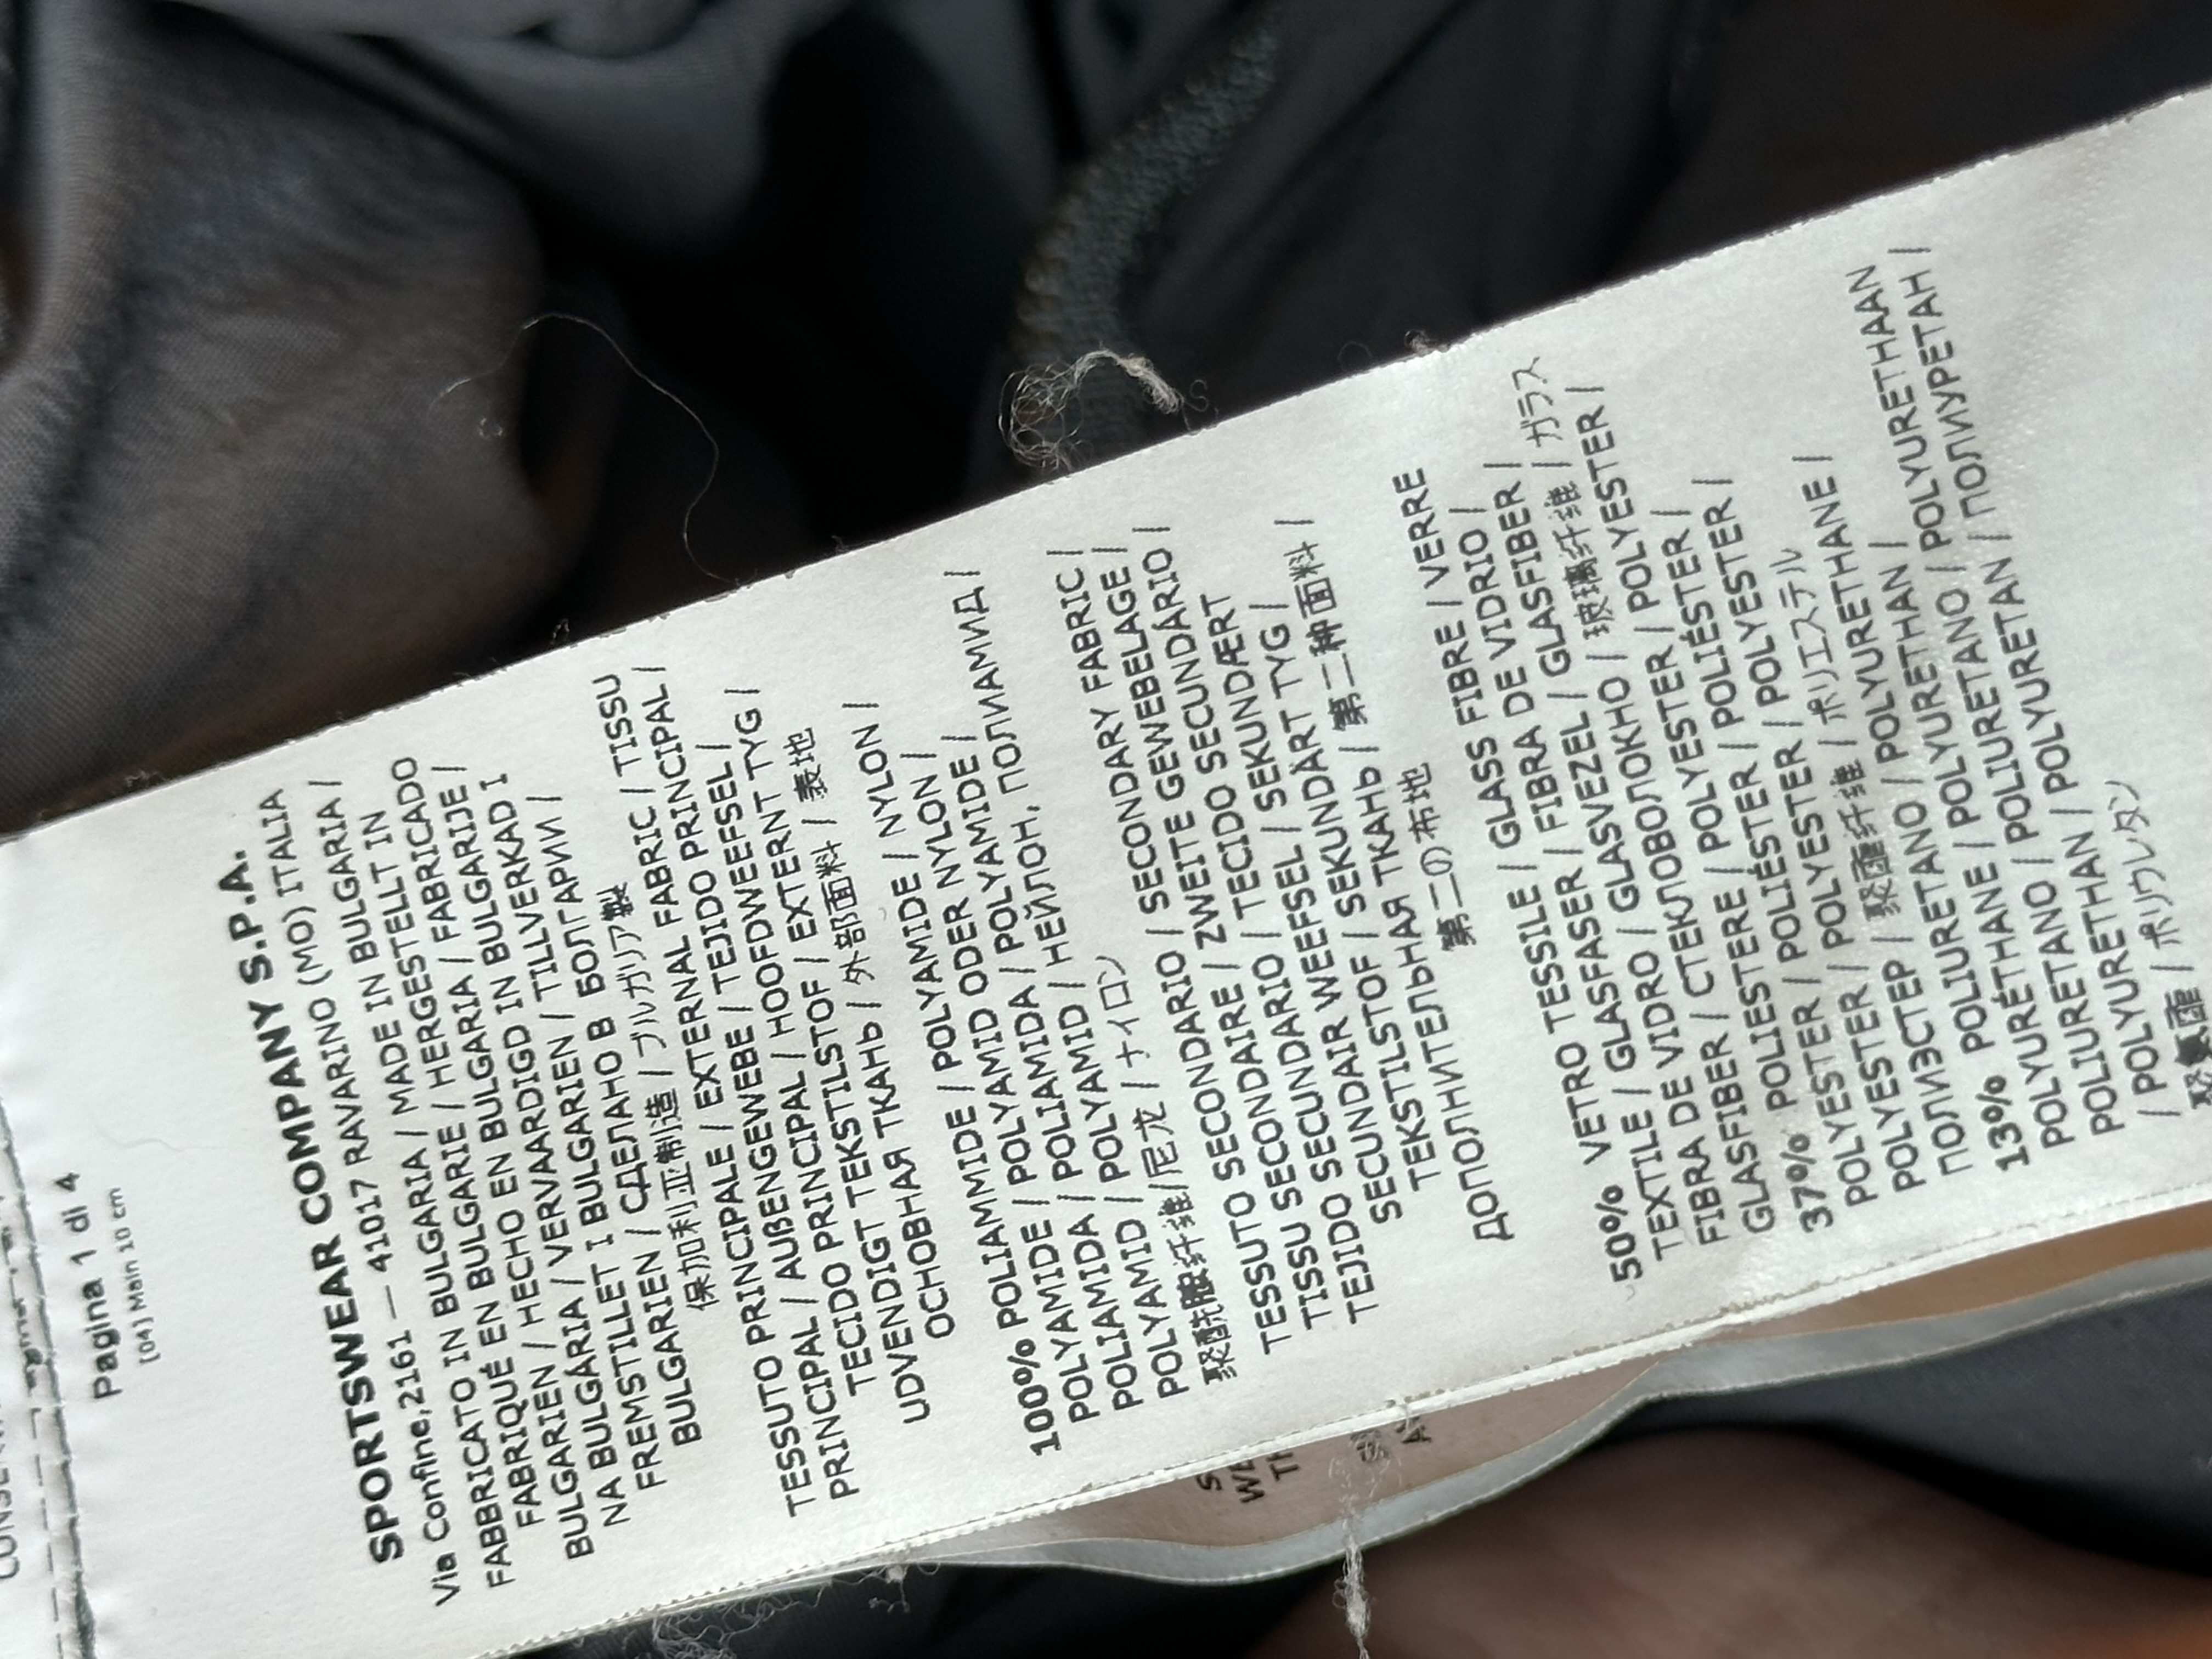 Pagina 1 di 4
[04] Main 10 cm
SPORTSWEAR COMPANY S.P.A.
Via Confine,2161 — 41017 RAVARINO (MO) ITALIA
FABBRICATO IN BULGARIA / MADE IN BULGARIA /
FABRIQUÉ EN BULGARIE / HERGESTELLT IN
BULGARIEN / HECHO EN BULGARIA / FABRICADO
NA BULGÁRIA / VERVAARDIGD IN BULGARIJE /
FREMSTILLET I BULGARIEN / TILLVERKAD I
BULGARIEN / СДЕЛАНО В БОЛГАРИИ /
保加利亚制造 / ブルガリア製
TESSUTO PRINCIPALE / EXTERNAL FABRIC / TISSU
PRINCIPAL / AUßENGEWEBE / TEJIDO PRINCIPAL /
TECIDO PRINCIPAL / HOOFDWEEFSEL /
UDVENDIGT TEKSTILSTOF / EXTERNT TYG /
ОСНОВНАЯ ТКАНЬ / 外部面料 / 表地
100% POLIAMMIDE / POLYAMIDE / NYLON /
POLYAMIDE / POLYAMID ODER NYLON /
POLIAMIDA / POLIAMIDA / POLYAMIDE /
POLYAMID / POLYAMID / НЕЙЛОН, ПОЛИАМИД /
聚酰胺纤维/尼龙 / ナイロン
TESSUTO SECONDARIO / SECONDARY FABRIC /
TISSU SECONDAIRE / ZWEITE GEWEBELAGE /
TEJIDO SECUNDARIO / TECIDO SECUNDÁRIO /
SECUNDAIR WEEFSEL / SEKUNDÆRT
TEKSTILSTOF / SEKUNDÄRT TYG /
ДОПОЛНИТЕЛЬНАЯ ТКАНЬ / 第二种面料 /
第二の布地
50% VETRO TESSILE / GLASS FIBRE / VERRE
TEXTILE / GLASFASER / FIBRA DE VIDRIO /
FIBRA DE VIDRO / GLASVEZEL / GLASFIBER /
GLASFIBER / СТЕКЛОВОЛОКНО / 玻璃纤维 / ガラス
37% POLIESTERE / POLYESTER / POLYESTER /
POLYESTER / POLIÉSTER / POLIÉSTER /
POLYESTER / POLYESTER / POLYESTER /
ПОЛИЭСТЕР / 聚酯纤维 / ポリエステル
13% POLIURETANO / POLYURETHANE /
POLYURÉTHANE / POLYURETHAN /
POLIURETANO / POLIURETANO / POLYURETHAAN
/ POLYURETHAN / POLYURETAN / ПОЛИУРЕТАН /
聚氨酯 / ポリウレタン